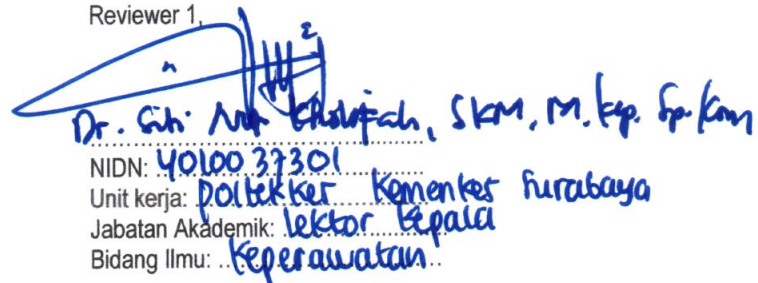 Reviewer 1,
Dr. Siti Nur Kholifah, SKM, M.Kep. Sp.Kom
NIDN: 4010037301
Unit kerja: Poltekkes Kemenkes Surabaya
Jabatan Akademik: Lektor Kepala
Bidang Ilmu: Keperawatan